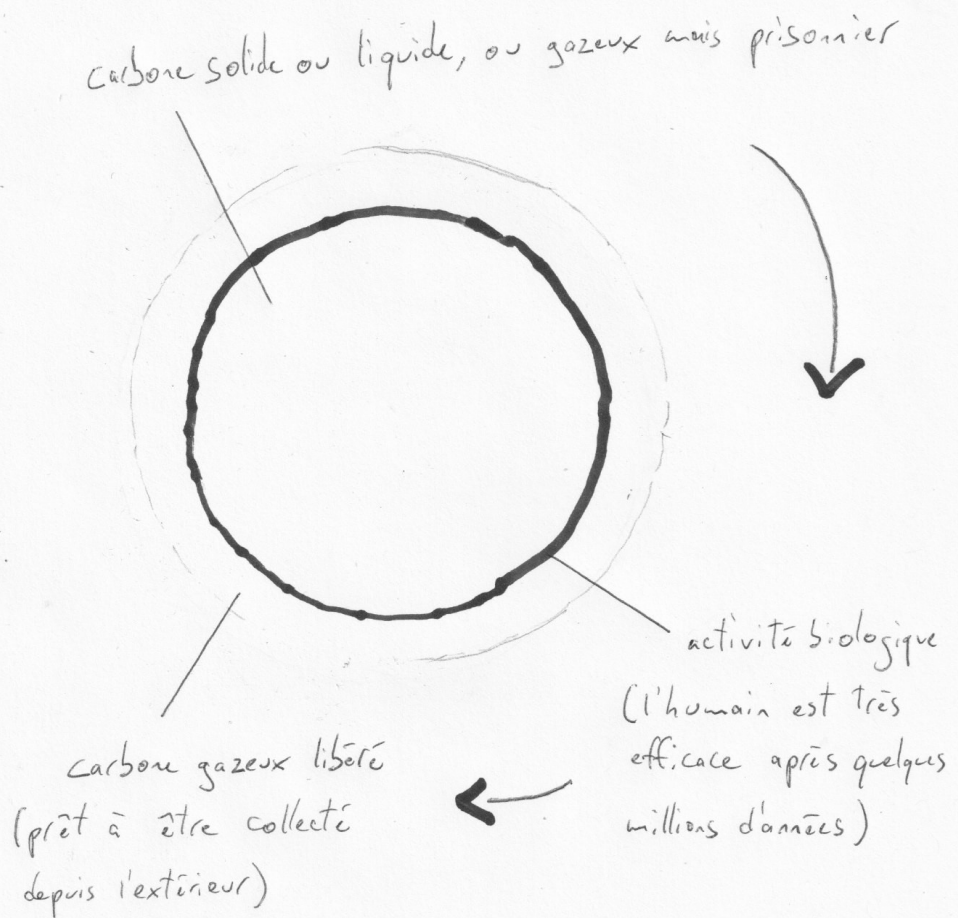 carbone solide ou liquide, ou gazeux mais prisonnier
activité biologique
(l'humain est très
efficace après quelques
millions d'années)
carbone gazeux libéré
(prêt à être collecté
depuis l'extérieur)